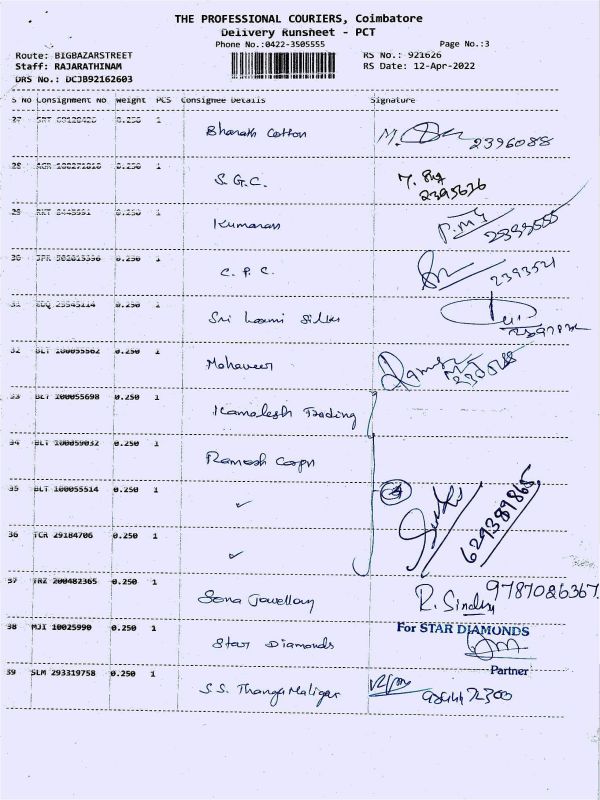 THE PROFESSIONAL COURIERS, Coimbatore
Delivery Runsheet - PCT
Phone No.:0422-3505555 Page No.:3
Route: BIGBAZARSTREET RS No.: 921626
Staff: RAJARATHINAM RS Date: 12-Apr-2022
DRS No.: DCJB92162603
S No Consignment No Weight PCS Consignee Details Signature
27 0.250 1 Bharath Cotton M. 2396088
28 0.250 1 S.G.C. 2395636
29 0.250 1 Kumaran 2393555
30 0.250 1 C.P.C. 2393521
31 0.250 1 Sri Laxmi Silks
32 BLT 100055562 0.250 1 Mahaveer
33 BLT 100055698 0.250 1 Kamalesh Trading
34 BLT 100059032 0.250 1 Ramesh Corpn
35 BLT 100055514 0.250 1 ✓ 4
36 TCR 29184706 0.250 1 ✓ 629389865
37 TRZ 200482365 0.250 1 Sona Jewellery R. 9787026367
38 MJI 10025990 0.250 1 Star Diamonds For STAR DIAMONDS
Partner
39 SLM 293319758 0.250 1 S.S. Thanga Maligai